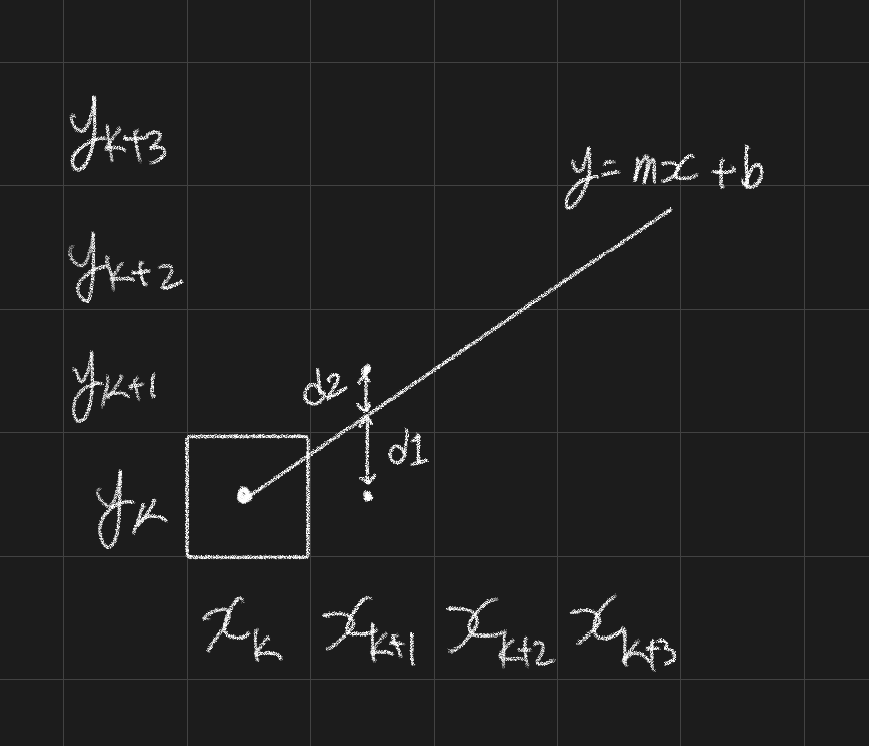 y_{k+3}
y = mx + b
y_{k+2}
y_{k+1}
d2
d1
y_k
x_k x_{k+1} x_{k+2} x_{k+3}